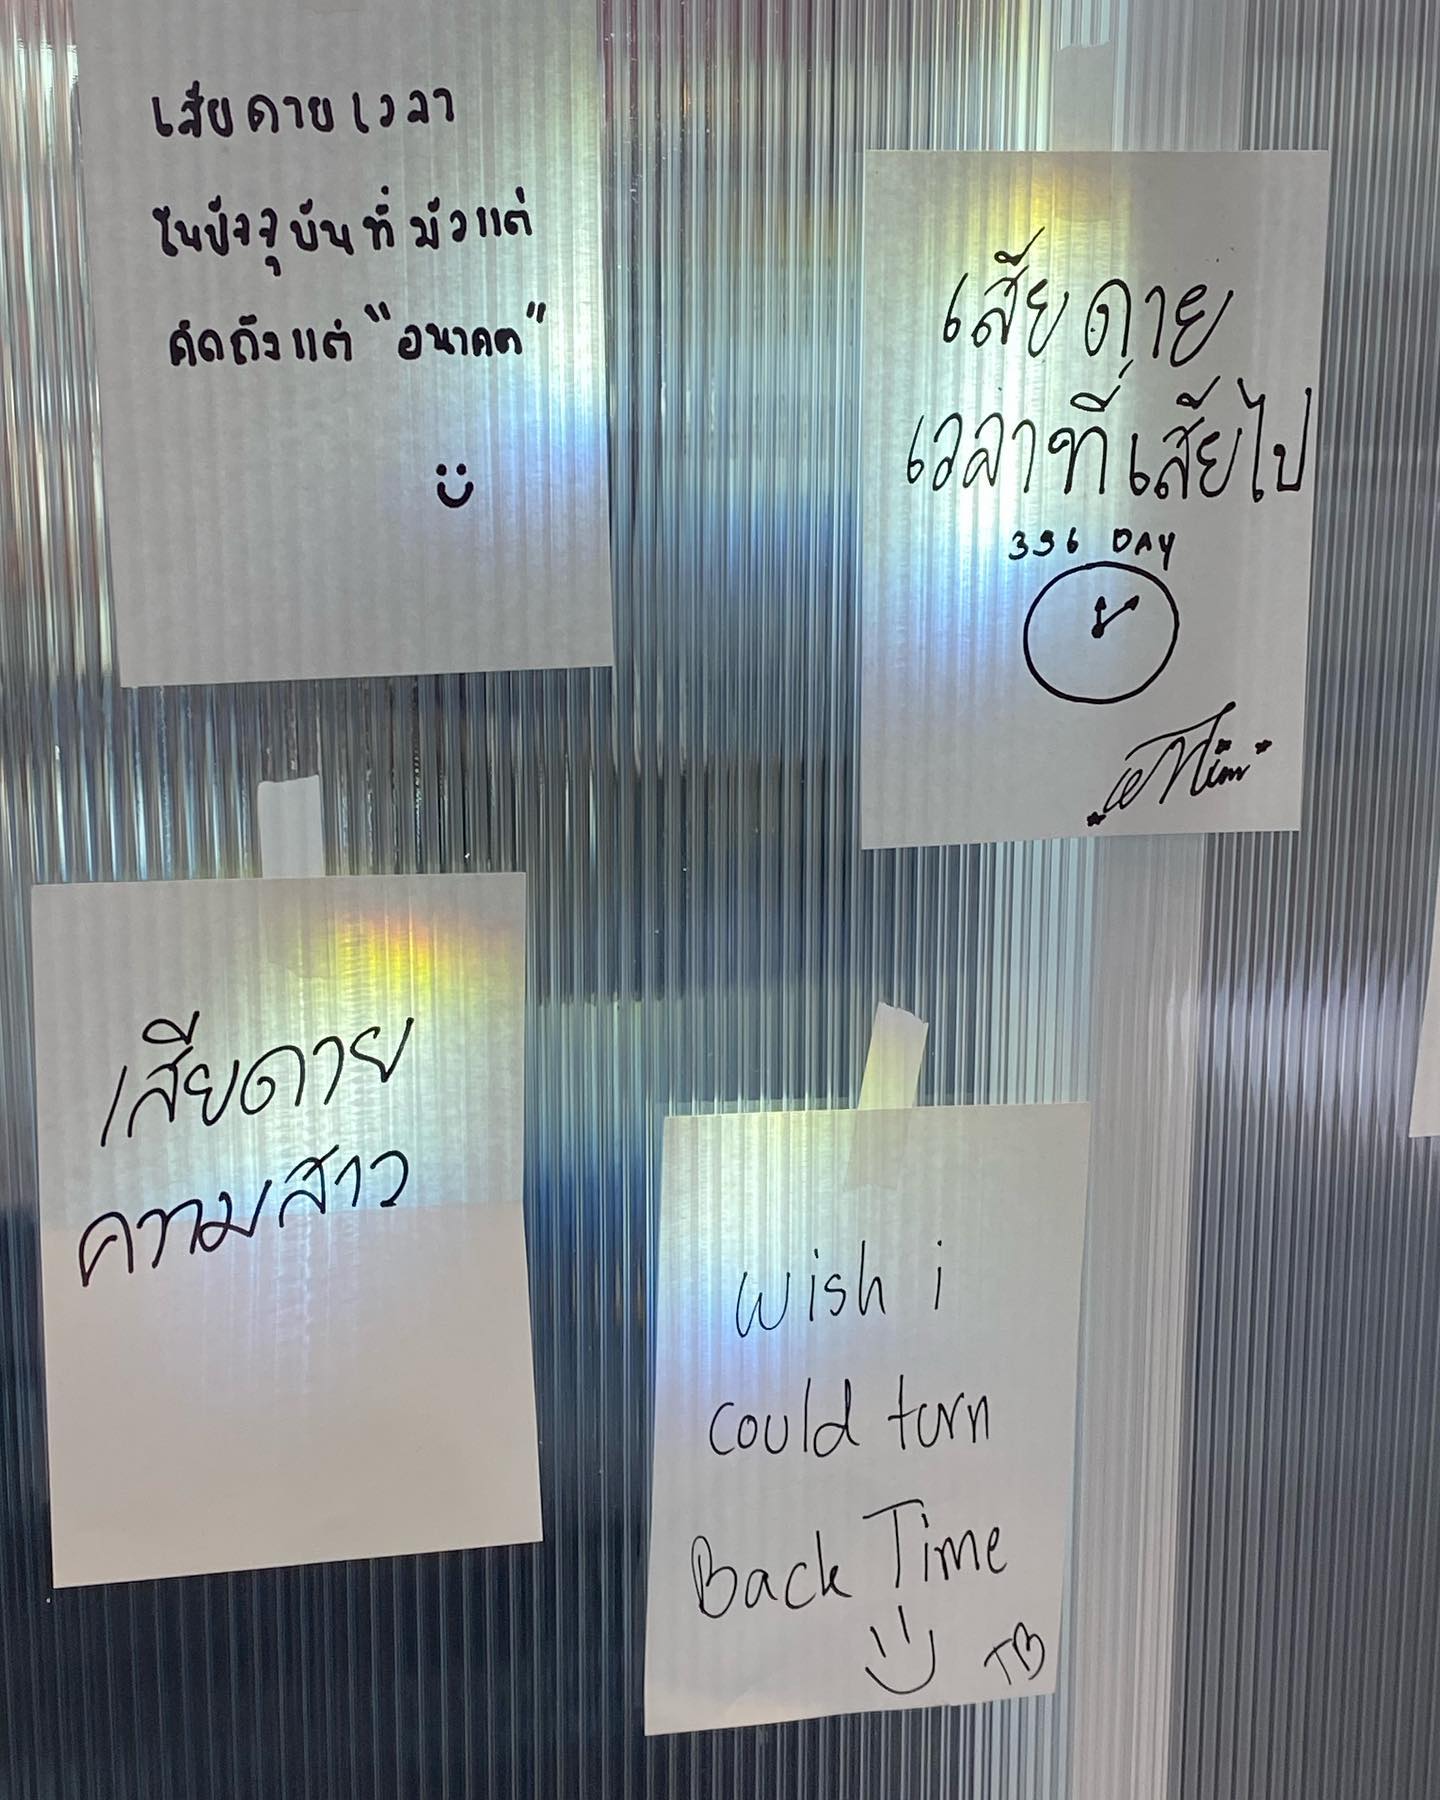 เสียดายเวลา
ในปัจจุบันที่มัวแต่
คิดถึงแต่ "อนาคต"
เสียดาย
เวลาที่เสียไป
396 DAY
เสียดาย
ความสาว
wish i
could turn
Back Time
TB